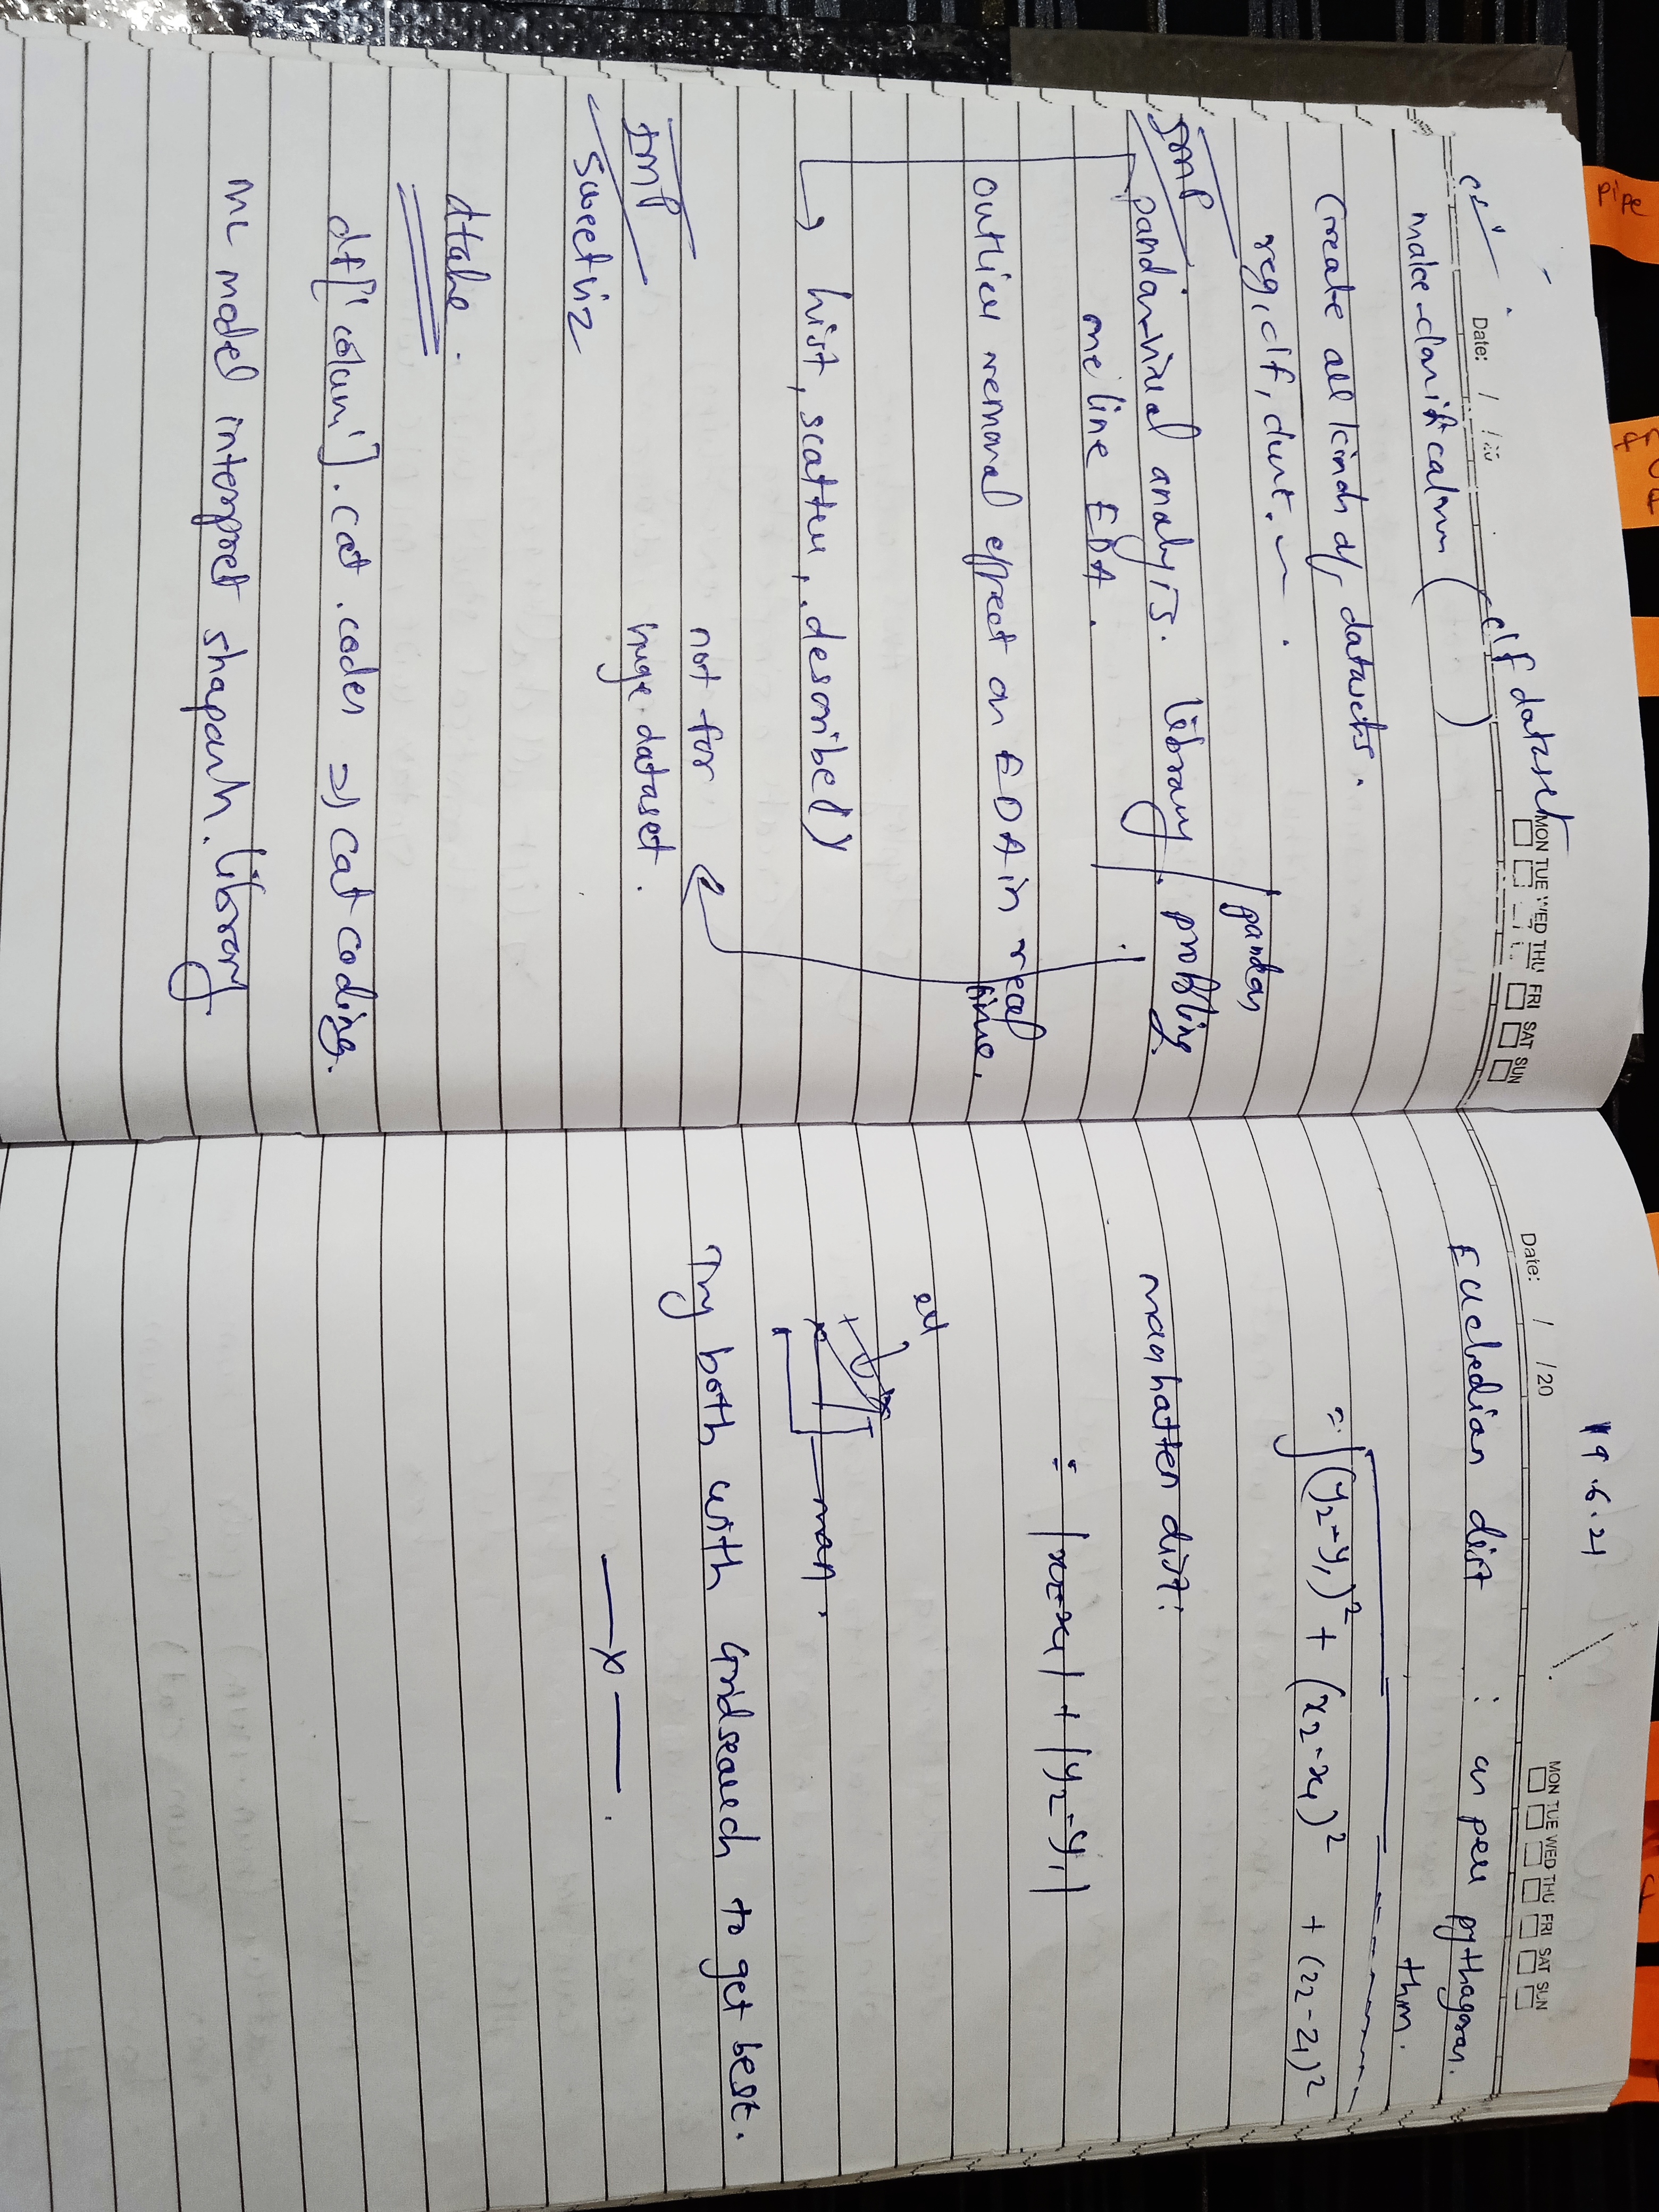 clf dataset
Date: / /20
MON TUE WED THU FRI SAT SUN
make-classification ( )
Create all kinds of datasets.
reg, clf, clust.
Imp
pandas-visual analysis. library. pandas profiling
one line EDA.
outlier removal effect on EDA in real time.
→ hist, scatter, .describe()
not for
huge dataset.
Imp
sweetviz
dtale.
df['colum'].cat.codes ⇒ cat coding.
ML model interpret shapash. library
19.6.21
Date: / /20
MON TUE WED THU FRI SAT SUN
Eucledian dist : as per pythagoras.
thm.
= √(y2-y1)² + (x2-x1)² + (z2-z1)²
manhatten dist:
= |x2-x1| + |y2-y1|
man.
Try both with Gridsearch to get best.
—x—.
pipe